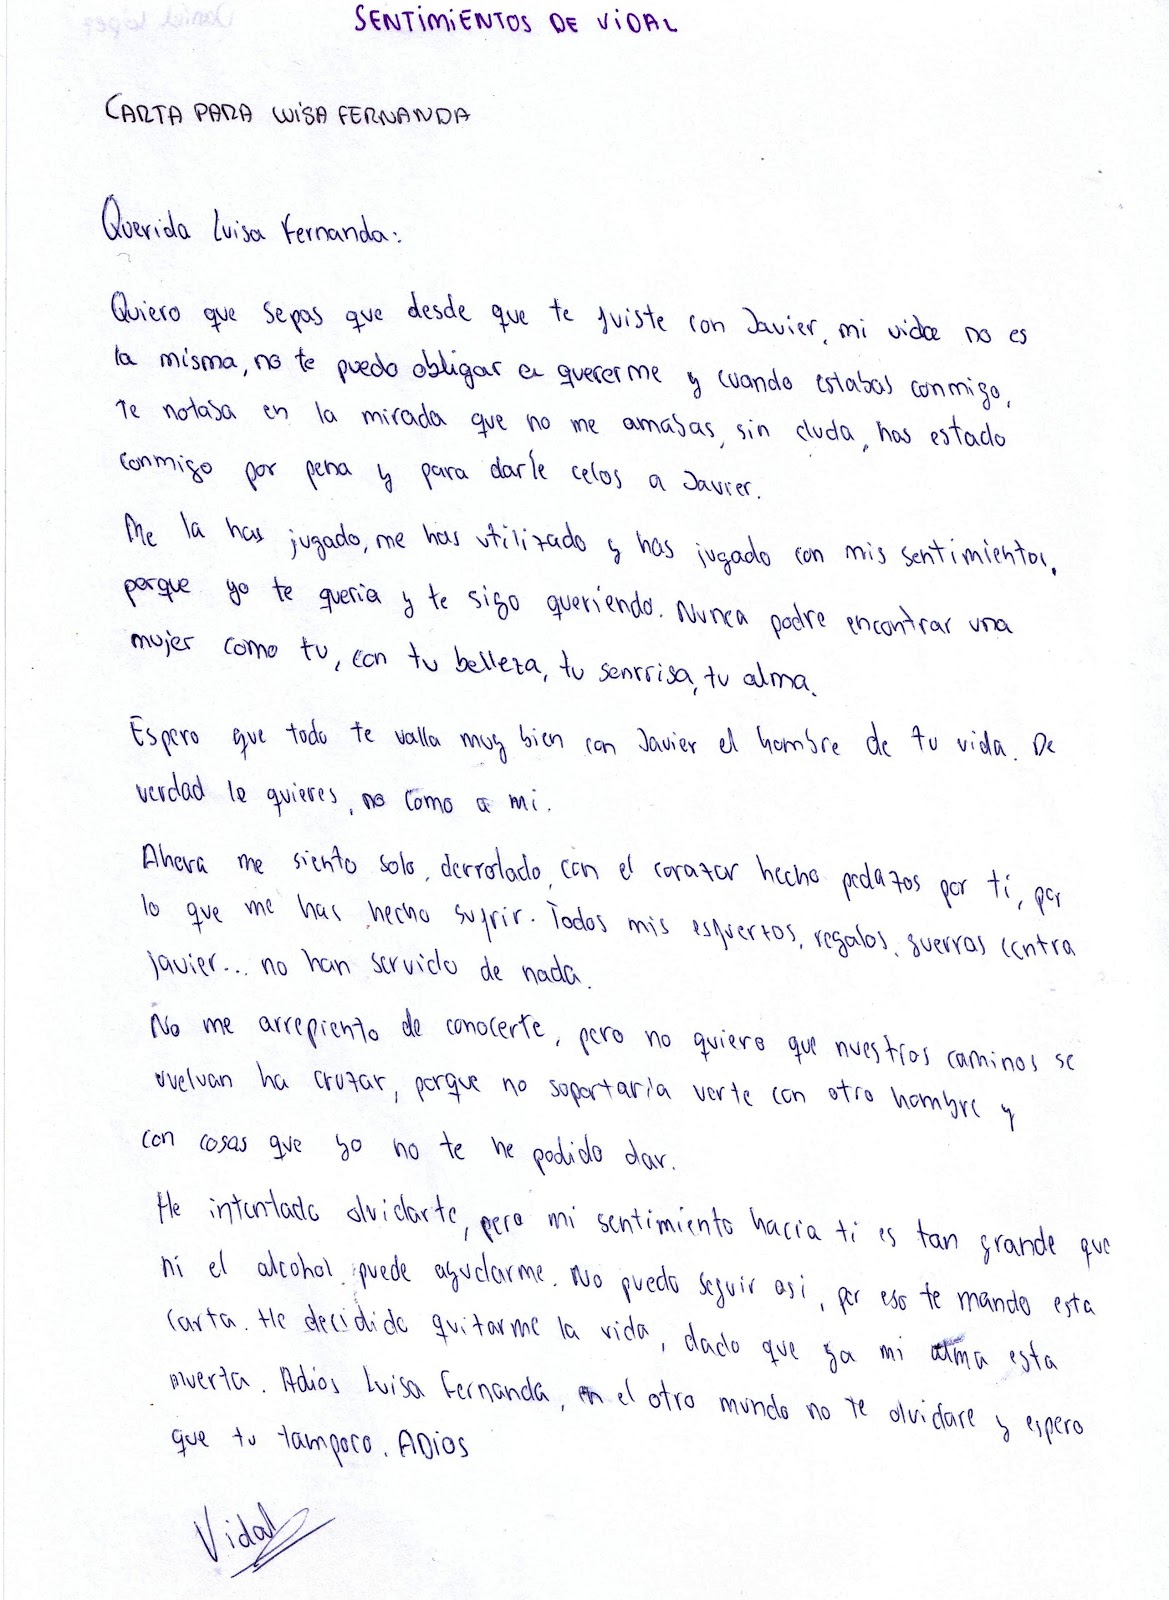 SENTIMIENTOS DE VIDAL
CARTA PARA LUISA FERNANDA
Querida Luisa Fernanda:
Quiero que sepas que desde que te fuiste con Javier, mi vida no es
la misma, no te puedo obligar a quererme y cuando estabas conmigo,
te notaba en la mirada que no me amabas, sin duda, has estado
conmigo por pena y para darle celos a Javier.
Me la has jugado, me has utilizado y has jugado con mis sentimientos,
porque yo te queria y te sigo queriendo. Nunca podre encontrar una
mujer como tu, con tu belleza, tu senrrisa, tu alma.
Espero que todo te valla muy bien con Javier el hombre de tu vida. De
verdad le quieres, no como a mi.
Ahora me siento solo, derrotado, con el corazon hecho pedazos por ti, por
lo que me has hecho sufrir. Todos mis esfuerzos, regalos, guerras contra
Javier... no han servido de nada.
No me arrepiento de conocerte, pero no quiero que nuestros caminos se
vuelvan ha cruzar, porque no soportaria verte con otro hombre y
con cosas que yo no te he podido dar.
He intentado olvidarte, pero mi sentimiento hacia ti es tan grande que
ni el alcohol puede ayudarme. No puedo seguir asi, por eso te mando esta
carta. He decidido quitarme la vida, dado que ya mi alma esta
muerta. Adios Luisa Fernanda, en el otro mundo no te olvidare y espero
que tu tampoco. ADIOS
Vidal